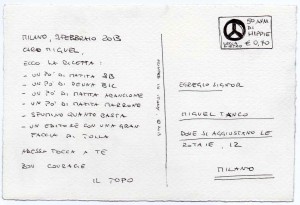 MILANO, 3 FEBBRAIO 2013
CARO MIGUEL
ECCO LA RICETTA:
- UN PO' DI MATITA 2B
- UN PO' DI PENNA BIC
- UN PO' DI MATITA ARANCIONE
- UN PO' DI MATITA MARRONE
- SPUNTINO QUANTO BASTA
- UN EDITORE CON UNA GRAN
FACCIA DI TOLLA
ADESSO TOCCA A TE
BON COURAGE
IL TOPO
50 ANNI
DI
HIPPIE
€ 0,70
EGREGIO SIGNOR
MIGUEL TANCO
DOVE SI AGGIUSTANO LE
ROTAIE, 12
MILANO